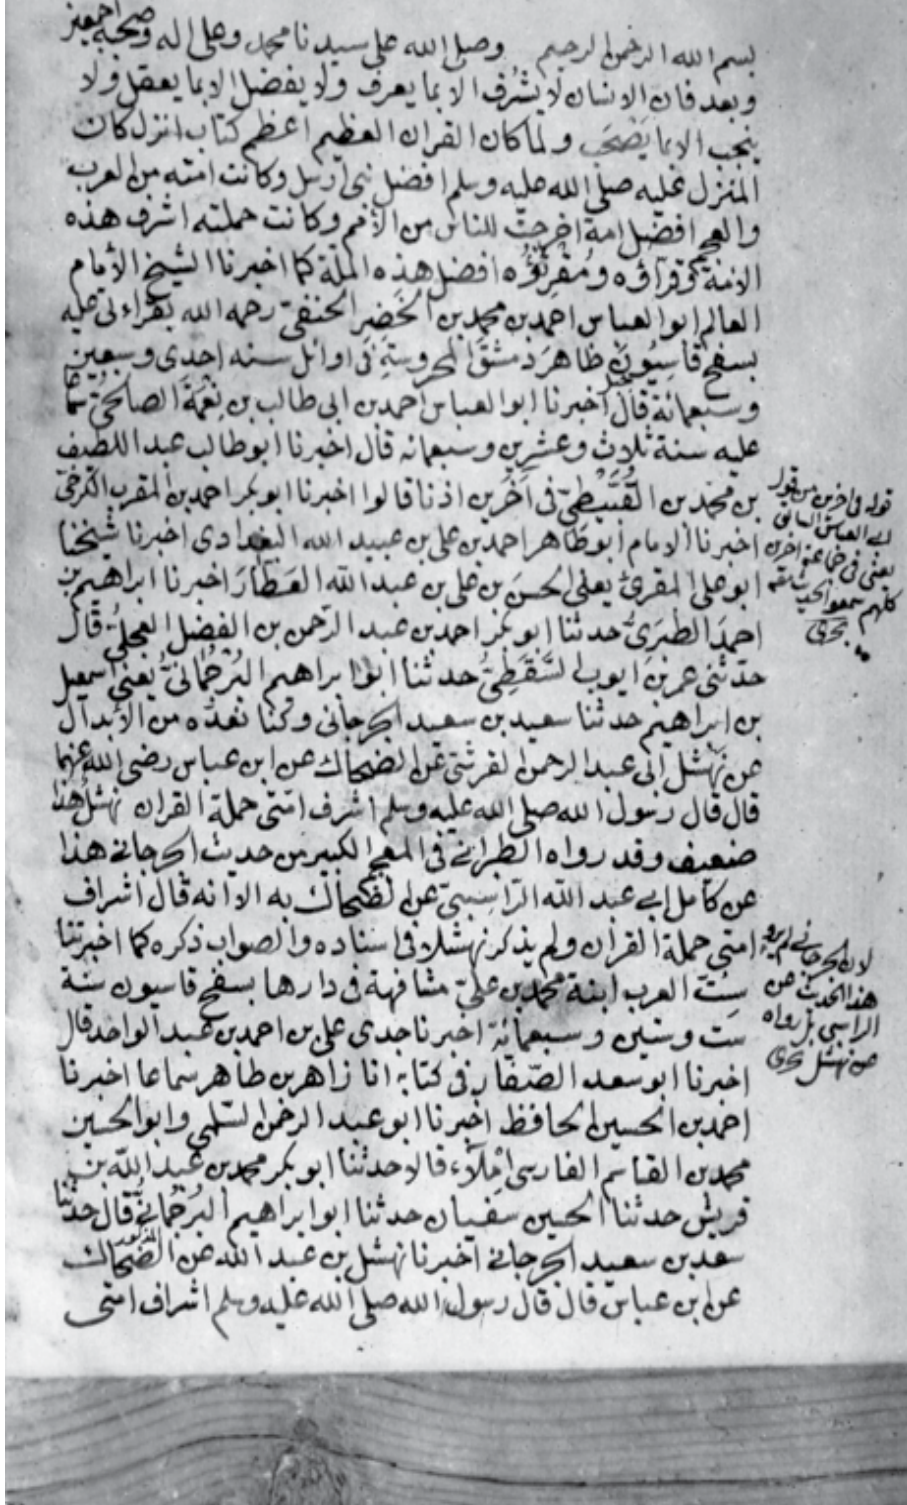 بسم الله الرحمن الرحيم وصلى الله على سيدنا محمد وعلى اله وصحبه اجمعين
وبعد فان الانسان لا يشرف الا بما يعرف ولا يفضل الا بما يعقل ولا
ينجب الا بما يصحب ولما كان القران العظيم اعظم كتاب انزل كان
المنزل عليه صلى الله عليه وسلم افضل نبي ارسل وكانت امته من العرب
والعجم افضل امة اخرجت للناس من الأمم وكانت حملته اشرف هذه
الامة وقراؤه ومقرئؤه افضل هذه الملة كما اخبرنا الشيخ الأمام
العالم ابو العباس احمد بن محمد بن الخضر الحنفي رحمه الله بقراءتي عليه
بسفح قاسيون ظاهر دمشق المحروسة في اوائل سنه احدى وسبعين
وسبعمائة قال اخبرنا ابو العباس احمد بن ابي طالب بن نعمة الصالحي سماعا
عليه سنة ثلاث وعشرين وسبعمائه قال اخبرنا ابو طالب عبد اللطيف
بن محمد بن القبيطي في اخرين اذنا قالوا اخبرنا ابو بكر احمد بن المقرب الكرخي
اخبرنا الامام ابو طاهر احمد بن علي بن عبيد الله البغدادي اخبرنا شيخنا
ابو علي المقرئ يعني الحسن بن علي بن عبد الله العطار اخبرنا ابراهيم بن
احمد الطبري حدثنا ابو بكر احمد بن عبد الرحمن بن الفضل العجلي قال
حدثني عمر بن ايوب السقطي حدثنا ابو ابراهيم البرجماني يعني اسمعيل
بن ابراهيم حدثنا سعيد بن سعيد الجرجاني وكنا نعده من الأبدال
عن نهشل ابي عبد الرحمن القرشي عن الضحاك عن ابن عباس رضي الله عنهما
قال قال رسول الله صلى الله عليه وسلم اشرف امتي حملة القران نهشل هذا
ضعيف وقد رواه الطبراني في المعجم الكبير من حديث الجرجاني هذا
عن كامل ابي عبد الله الراسبي عن الضحاك به الا انه قال اشراف
امتي حملة القران ولم يذكر نهشلا في اسناده والصواب ذكره كما اخبرتنا
ست العرب ابنة محمد بن علي مشافهة في دارها بسفح قاسيون سنة
ست وستين وسبعمائة اخبرنا جدي علي بن احمد بن عبد الواحد قال
اخبرنا ابو سعد الصفار في كتابه انا زاهر بن طاهر سماعا اخبرنا
احمد بن الحسين الحافظ اخبرنا ابو عبد الرحمن السلمي وابو الحسين
محمد بن القاسم الفارسي املاء قالا حدثنا ابو بكر محمد بن عبد الله بن
قريش حدثنا الحسين سفيان حدثنا ابو ابراهيم البرجماني قال حدثنا
سعد بن سعيد الجرجاني اخبرنا نهشل بن عبد الله عن الضحاك
عن ابن عباس قال قال رسول الله صلى الله عليه وسلم اشراف امتي
قوله في اخرين من قول
ابي العباس
يعني في جماعة اخرين
كلهم سمعوا
لان الجرجاني لم يرو
هذا الحديث عن
الراسبي بل رواه
عن نهشل